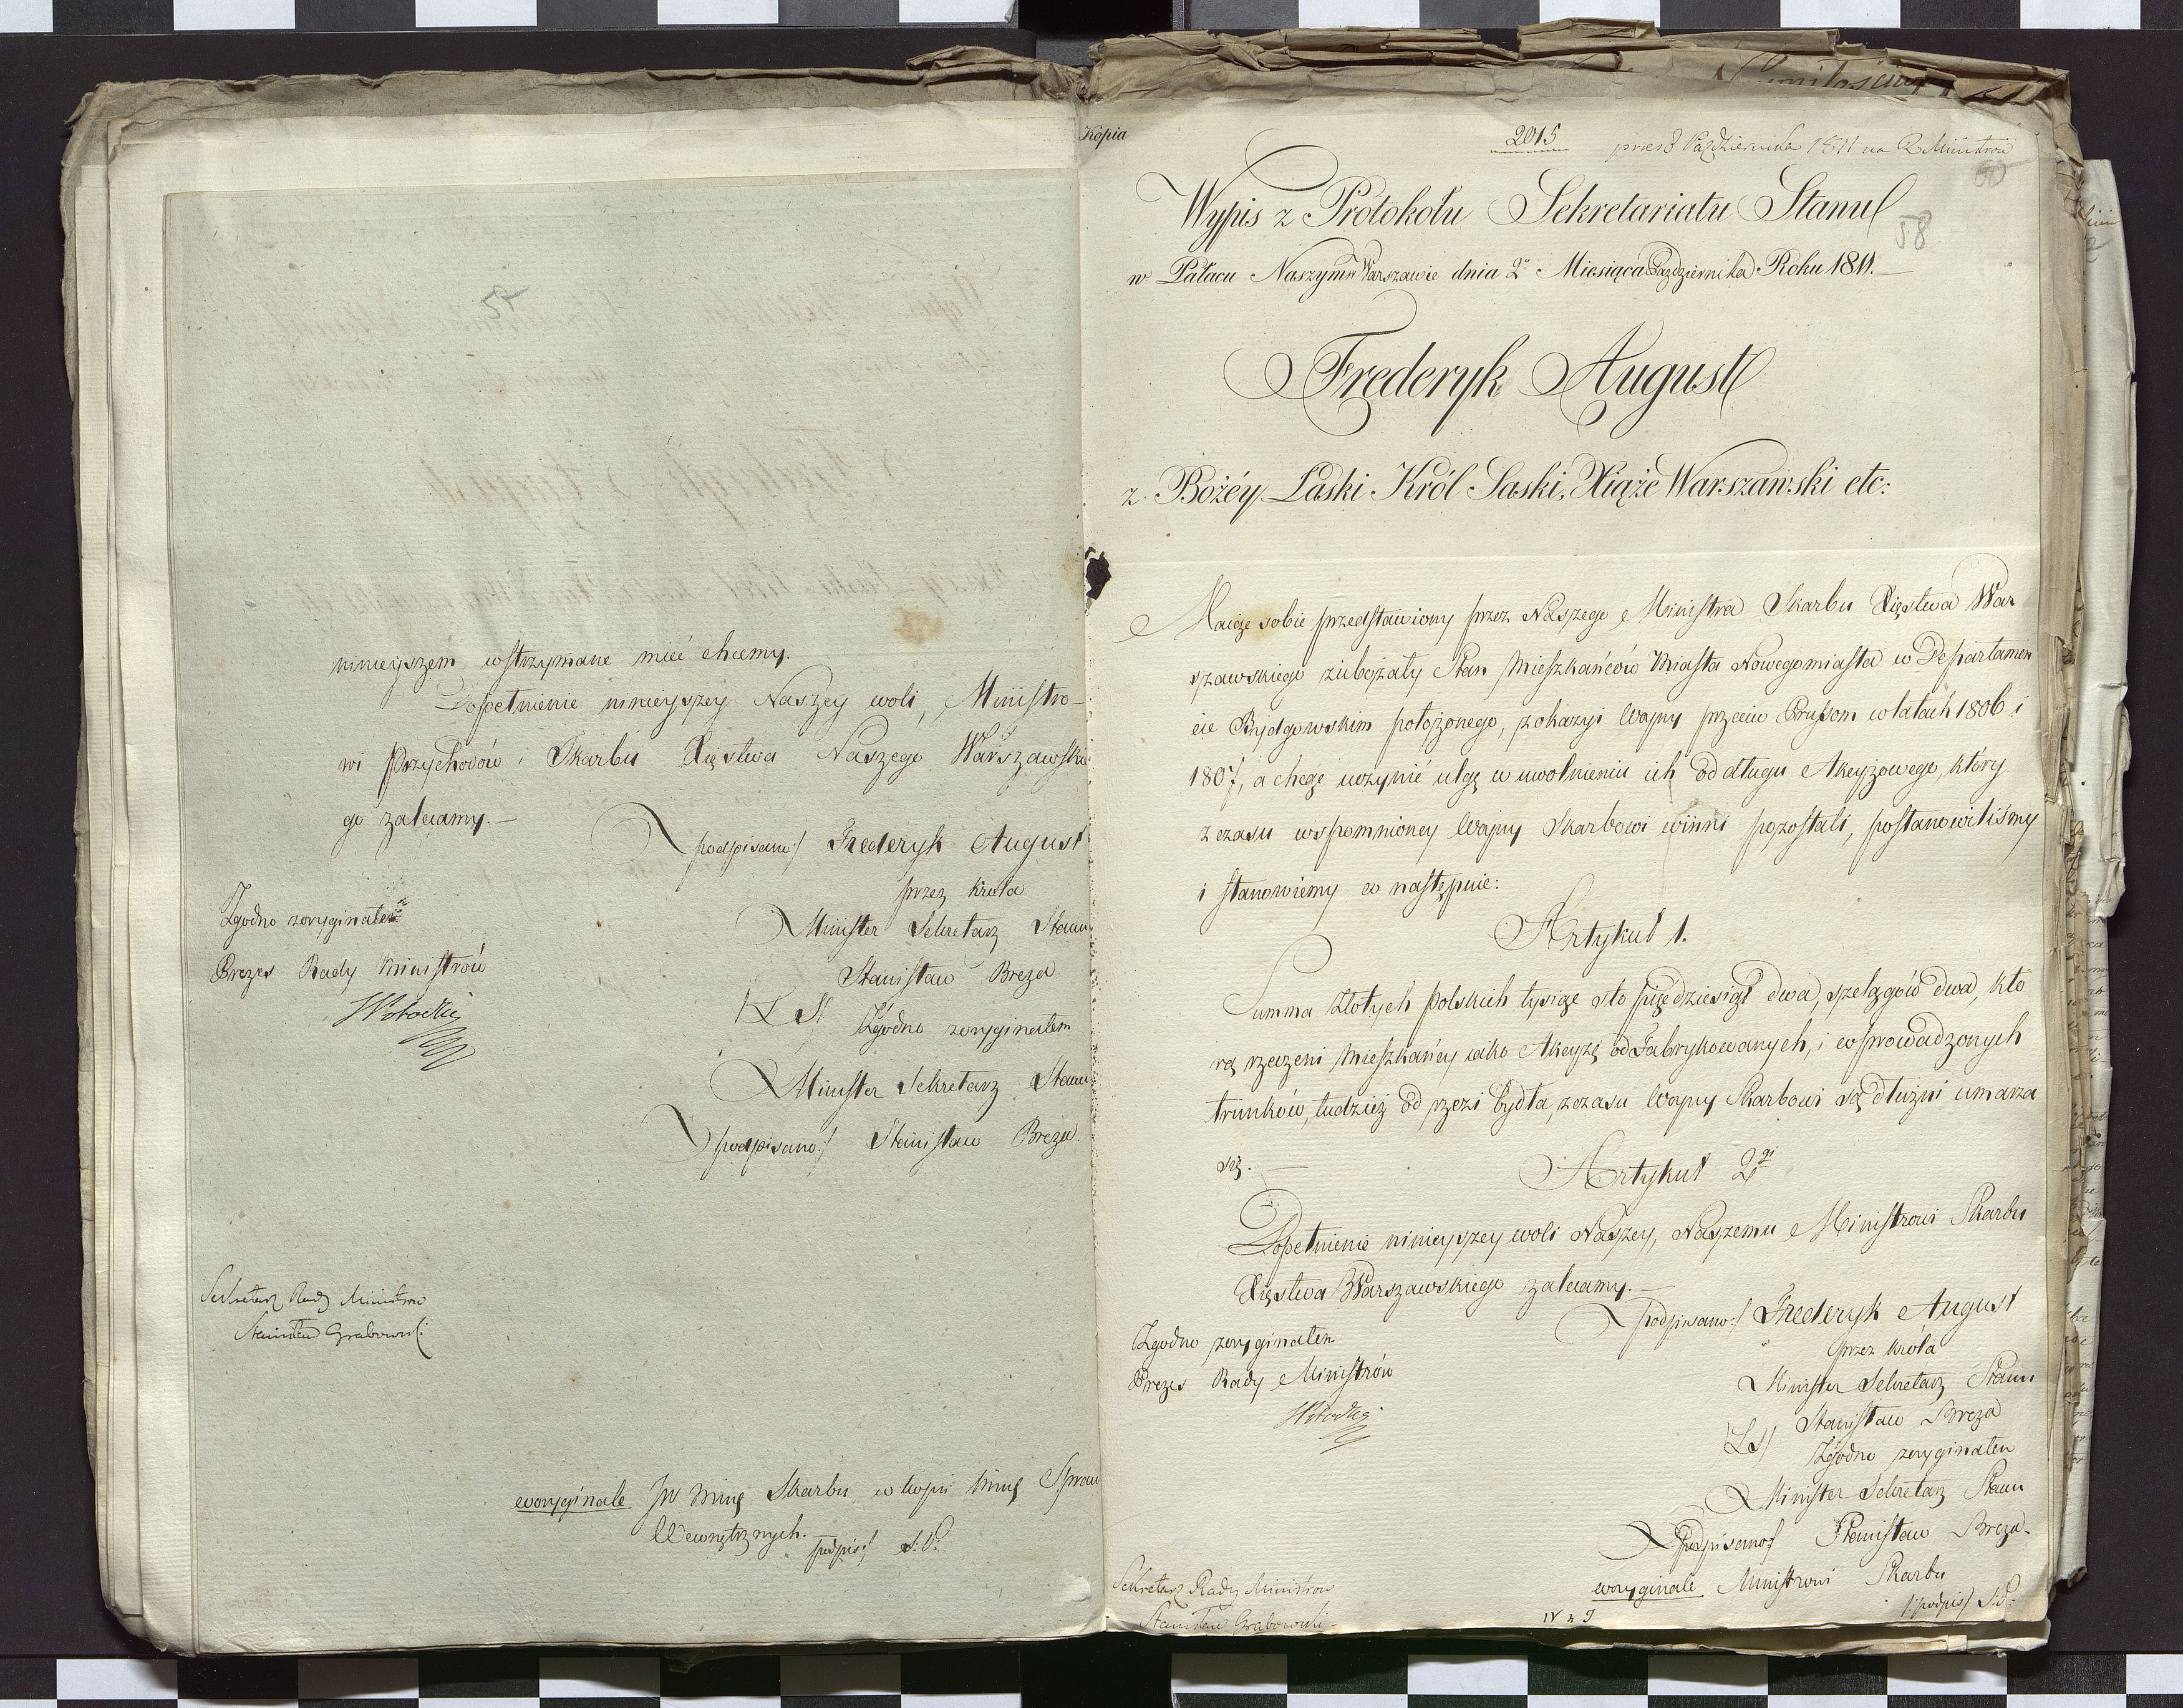 57
ninieyszem wstrzymane mieć chcemy.
Dopełnienie ninieyszey Naszey woli, Ministro-
wi Przychodów i Skarbu Xięstwa Naszego Warszawskie
go zalecamy.—
podpisano:/ Frederyk August
przez Króla
Minister Sekretarz Stanu
Stanisław Breza
/L S/ Zgodno zoryginałem
Minister Sekretarz Stanu
/podpisano:/ Stanisław Breza.
Zgodno zoryginałem
Prezes Rady Ministrów
Sekretarz Rady Ministrow
Stanisław Grabowski.
woryginale JW Minr Skarbu, w kopii Minr Spraw
Wewnętrznych.
/podpis:/ S: B:
Kopia
2015
przes 8 Października 1811 na R Ministrów
60
58
Wypis z Protokołu Sekretariatu Stanu
w Pałacu Naszym w Warszawie dnia 2o Miesiąca Października Roku 1811.—
Frederyk August
z Bożéy Łaski Król Saski, Xiąże Warszawski etc:
Maiąc sobie przedstawiony przez Naszego Ministra Skarbu Xięstwa War
szawskiego zubożały Stan Mieszkańców Miasta Nowegomiasta w Departamen
cie Bydgowskim położonego, z okazyi Woyny przeciw Prussom w latach 1806 i
1807, a chcąc uczynić ulgę w uwolnieniu ich od długu Akcyzowego, który
z czasu wspomnioney Woyny Skarbowi winni pozostali, postanowiliśmy
i stanowiemy co następuie:
Artykuł 1.
Summa Złotych Polskich tysiąc sto pięędziesiąt dwa, szelągów dwa, któ
rą rzeczeni Mieszkańcy iako Akcyzę od Fabrykowanych, i wprowadzonych
trunków, tudzież od rzezi bydła, z czasu Woyny Skarbowi są dłużni umarza
się.—
Artykuł 2gi
Dopełnienie ninieyszey woli Naszey, Naszemu Ministrowi Skarbu
Xięstwa Warszawskiego zalecamy.—
/podpisano:/ Frederyk August
przez Króla
Minister Sekretarz Stanu
Stanisław Breza
/L S/
Zgodno zoryginałem
Minister Sekretarz Stanu
/podpisano/ Stanisław Breza.
woryginale Ministrowi Skarbu
/podpis/ S: B:
Zgodno zoryginałem
Prezes Rady Ministrów
Sekretarz Rady Ministrow
Stanisław Grabowski